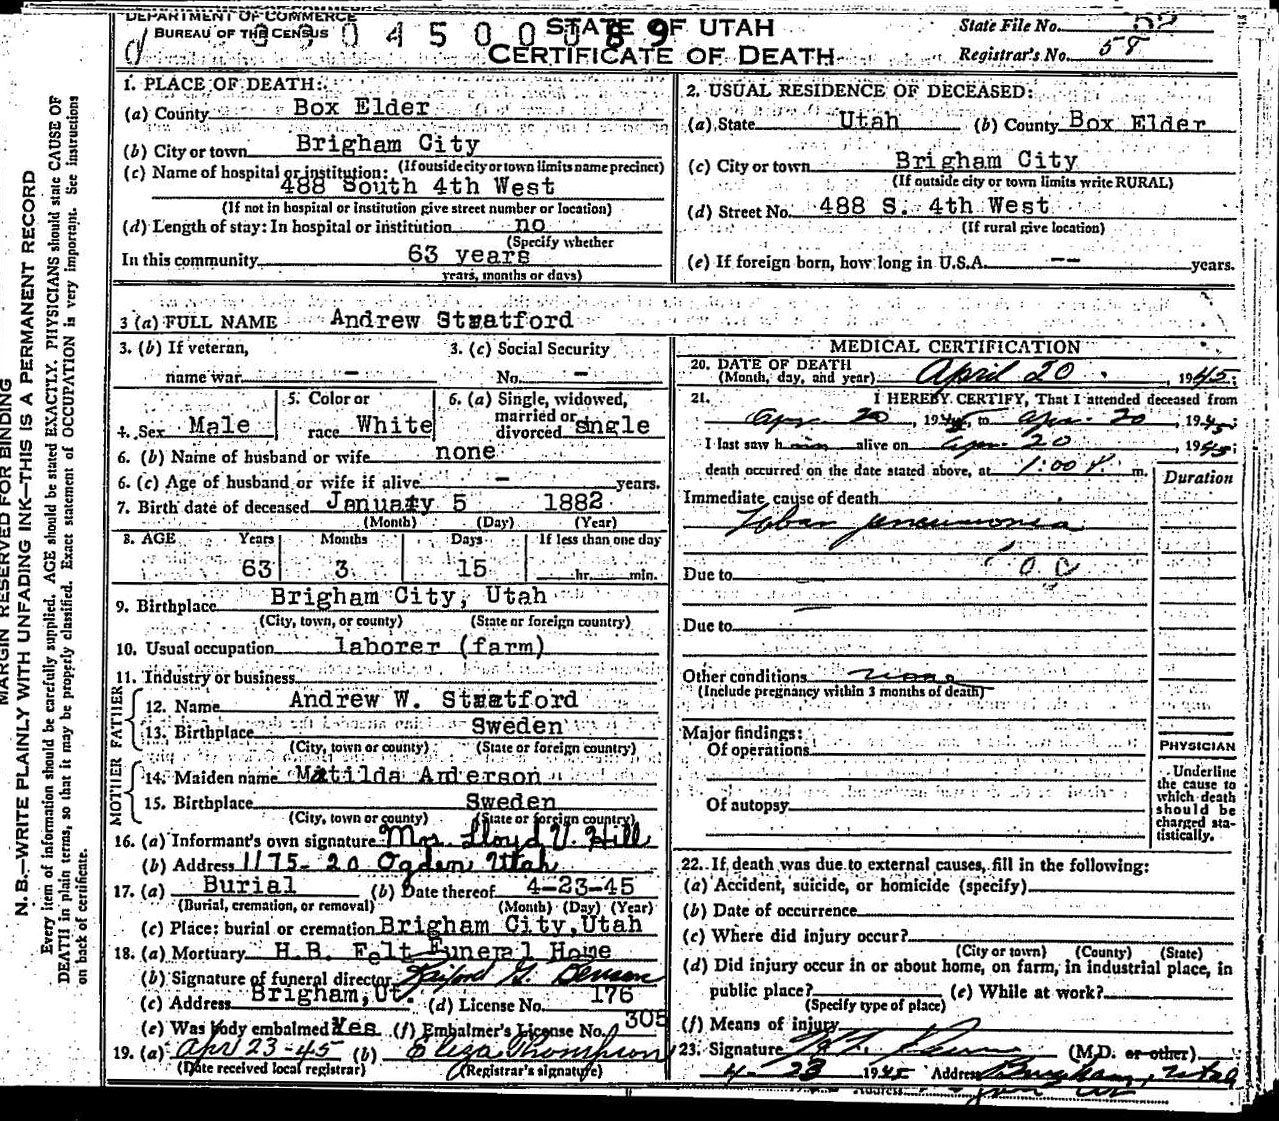 DEPARTMENT OF COMMERCE
BUREAU OF THE CENSUS
0450089
STATE OF UTAH
CERTIFICATE OF DEATH
State File No. 52
Registrar's No. 58
1. PLACE OF DEATH:
(a) County Box Elder
(b) City or town Brigham City
(If outside city or town limits name precinct)
(c) Name of hospital or institution:
488 South 4th West
(If not in hospital or institution give street number or location)
(d) Length of stay: In hospital or institution no
(Specify whether
In this community 63 years
years, months or days)
2. USUAL RESIDENCE OF DECEASED:
(a) State Utah (b) County Box Elder
(c) City or town Brigham City
(If outside city or town limits write RURAL)
(d) Street No. 488 S. 4th West
(If rural give location)
(e) If foreign born, how long in U.S.A. -- years.
3 (a) FULL NAME Andrew Stratford
3. (b) If veteran,
name war -
3. (c) Social Security
No. -
4. Sex Male
5. Color or
race White
6. (a) Single, widowed,
married or
divorced sngle
6. (b) Name of husband or wife none
6. (c) Age of husband or wife if alive - years.
7. Birth date of deceased January 5 1882
(Month) (Day) (Year)
8. AGE Years Months Days If less than one day
63 3 15 hr. min.
9. Birthplace Brigham City, Utah
(City, town, or county) (State or foreign country)
10. Usual occupation laborer (farm)
11. Industry or business
FATHER
12. Name Andrew W. Stratford
13. Birthplace Sweden
(City, town or county) (State or foreign country)
MOTHER
14. Maiden name Matilda Anderson
15. Birthplace Sweden
(City, town or county) (State or foreign country)
16. (a) Informant's own signature Mrs. Lloyd V. Hill
(b) Address 1175-20 Ogden, Utah
17. (a) Burial (b) Date thereof 4-23-45
(Burial, cremation, or removal) (Month) (Day) (Year)
(c) Place: burial or cremation Brigham City, Utah
18. (a) Mortuary H.B. Felt Funeral Home
(b) Signature of funeral director
(c) Address Brigham, Ut. (d) License No. 176
(e) Was body embalmed Yes (f) Embalmer's License No. 305
19. (a) Apr 23-45 (b) Eliza Thompson
(Date received local registrar) (Registrar's signature)
MEDICAL CERTIFICATION
20. DATE OF DEATH
(Month, day, and year) April 20, 1945
21. I HEREBY CERTIFY, That I attended deceased from
Apr. 20, 1945, to Apr. 20, 1945;
I last saw him alive on Apr. 20 1945;
death occurred on the date stated above, at 1:00 P. m.
Duration
Immediate cause of death
Lobar pneumonia
Due to
Due to
Other conditions none
(Include pregnancy within 3 months of death)
Major findings:
Of operations
Of autopsy
PHYSICIAN
Underline
the cause to
which death
should be
charged sta-
tistically.
22. If death was due to external causes, fill in the following:
(a) Accident, suicide, or homicide (specify)
(b) Date of occurrence
(c) Where did injury occur?
(City or town) (County) (State)
(d) Did injury occur in or about home, on farm, in industrial place, in
public place? (e) While at work?
(Specify type of place)
(f) Means of injury
23. Signature (M.D. or other)
4-23 1945 Address Brigham, Utah
Address
MARGIN RESERVED FOR BINDING
N. B.—WRITE PLAINLY WITH UNFADING INK—THIS IS A PERMANENT RECORD
Every item of information should be carefully supplied. AGE should be stated EXACTLY. PHYSICIANS should state CAUSE OF
DEATH in plain terms, so that it may be properly classified. Exact statement of OCCUPATION is very important. See instructions
on back of certificate.